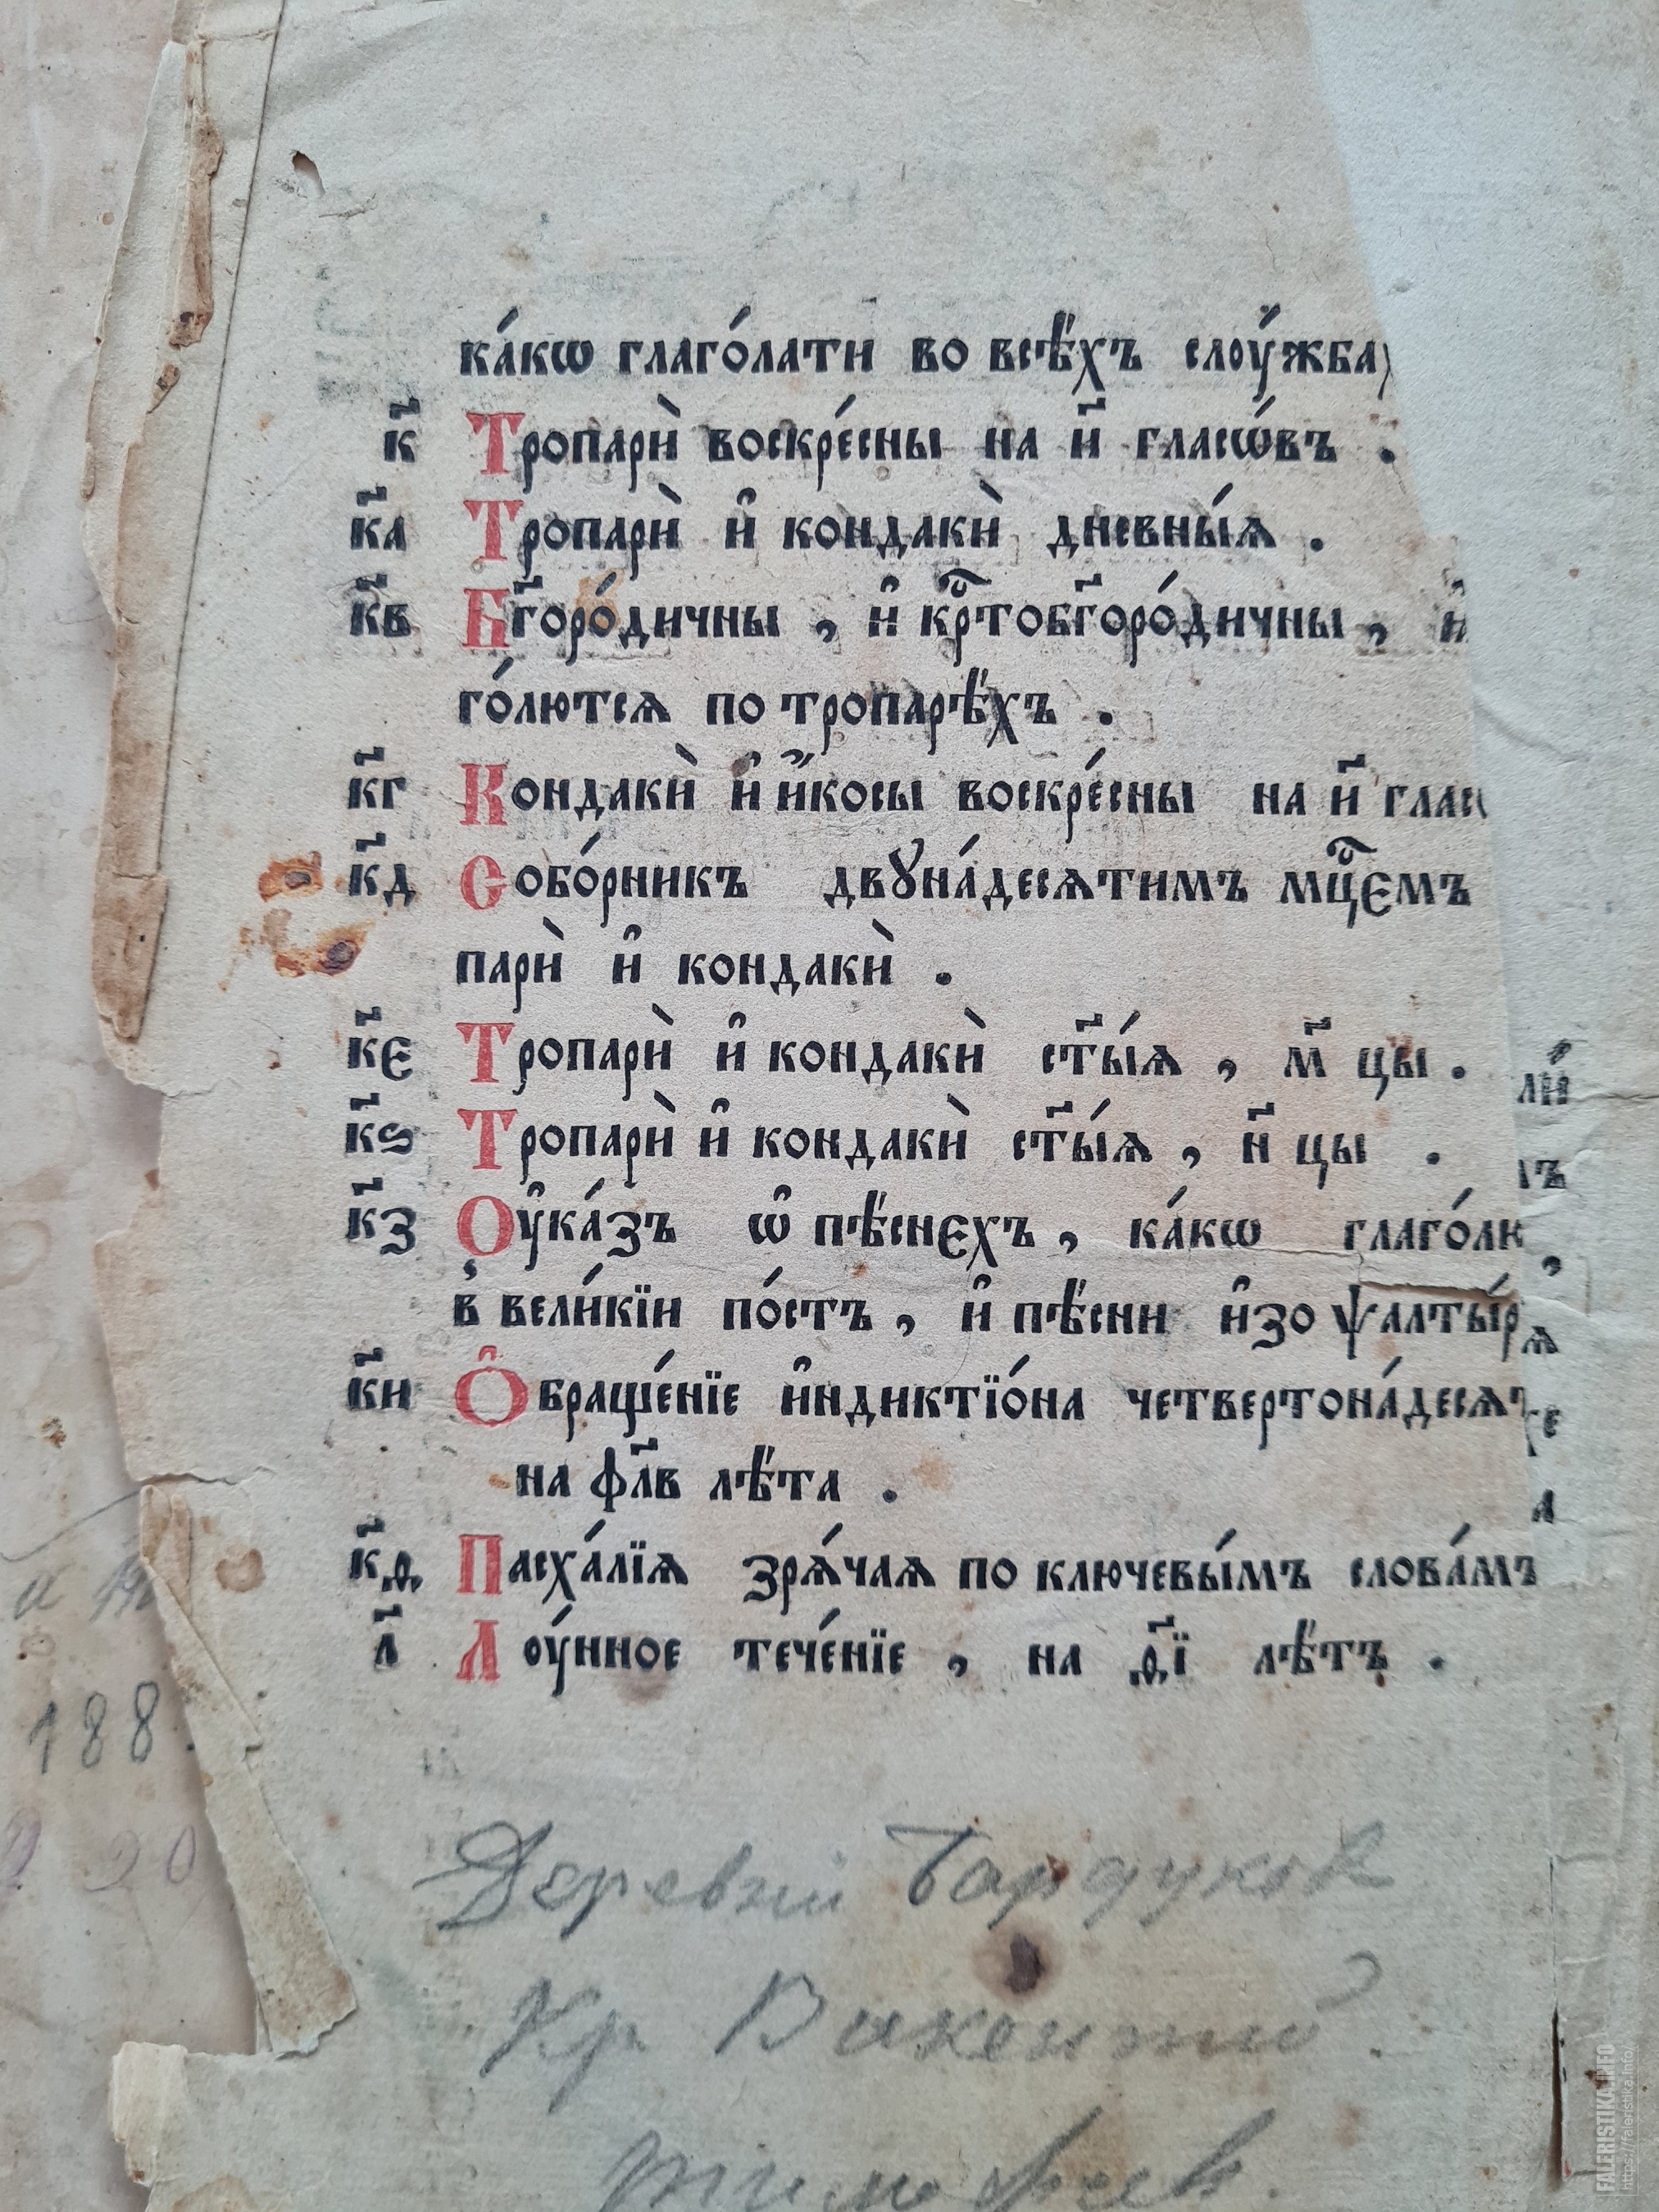 ка́кѡ глаго́лати во всѣ́хъ слоу́жба
к҃ Тропарѝ воскре́сны на и҃ гласѡ́въ .
к҃а Тропарѝ и҆ кондакѝ дневны́ѧ .
к҃в Бг҃оро́дичны , и҆ крⷭ҇тобг҃оро́дичны , и҆
го́лютсѧ по тропарѣ́хъ .
к҃г Кондакѝ и҆ и҆́косы воскре́сны на и҃ глас
к҃д Собо́рникъ двꙋна́десѧтимъ мцⷭ҇ємъ
парѝ и҆ кондакѝ .
к҃є Тропарѝ и҆ кондакѝ ст҃ы́ѧ , м҃ цы .
к҃ѕ Тропарѝ и҆ кондакѝ ст҃ы́ѧ , н҃ цы .
к҃з Оу҆ка́зъ ѡ҆ пѣ́снєхъ , ка́кѡ глаго́лю
в вели́кїи по́стъ , и҆ пѣ́сни и҆зо ѱалты́рѧ
к҃и Ѻ҆браще́нїе и҆ндиктїо́на четвертона́десѧт
на фл҃в лѣ́та .
к҃ѳ Пасха́лїѧ зрѧ́чаѧ по ключевы́мъ слова́мъ
л҃ Лоу́нное тече́нїе , на ѳ҃ї лѣ́тъ .
188
Деревни Бардуков
Кр Викентий
Тимофеев.
FALERISTIKA.INFO
https://faleristika.info/